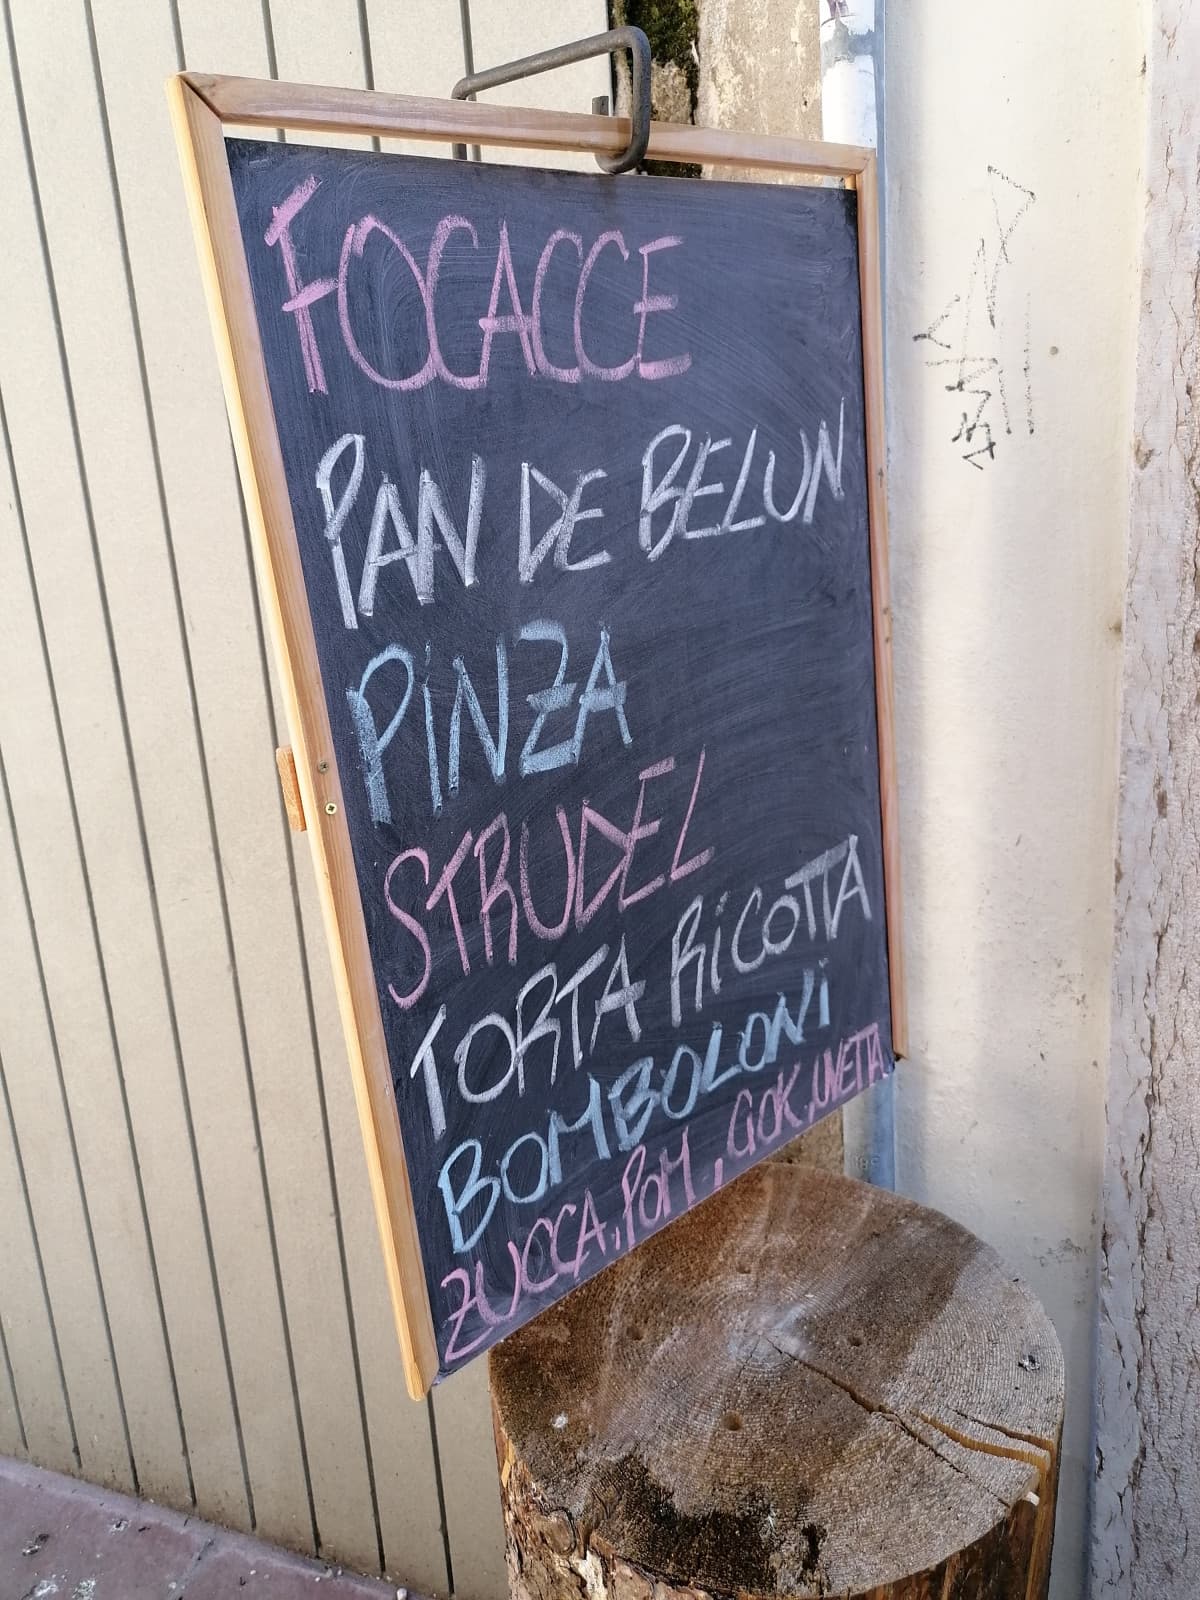 FOCACCE
PAN DE BELUN
PiNZA
STRUDEL
TORTA RiCOTTA
BOMBOLONi
ZUCCA, POM, GOK, UVETTA